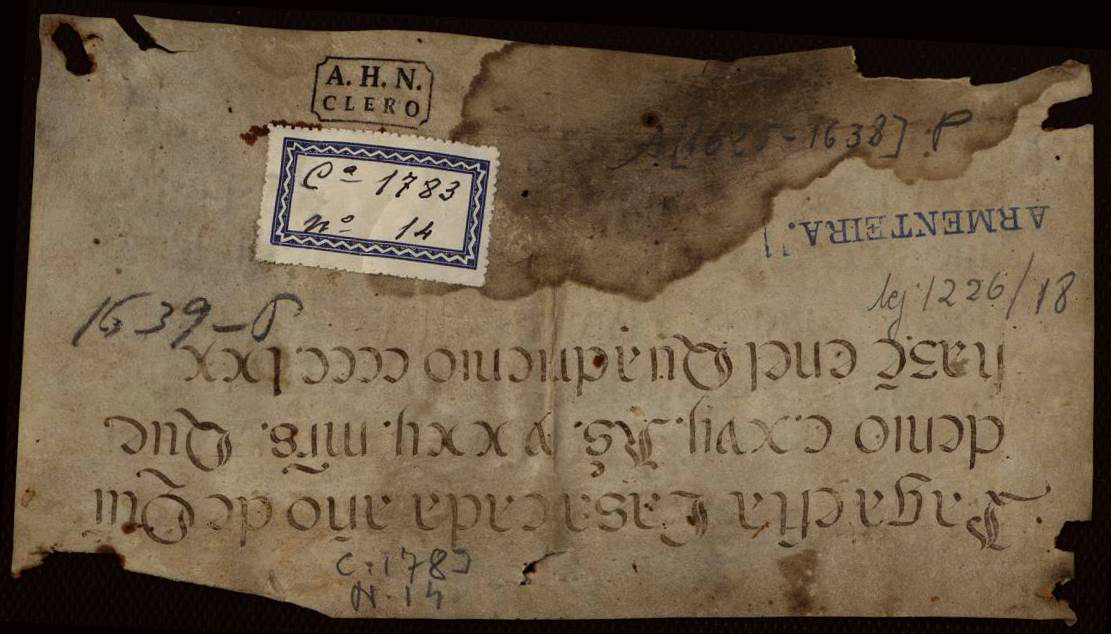 A. H. N.
CLERO
Cª 1783
Nº 14
A[1625-1638] P
ARMENTEIRA.
leg 1226/18
1639-P
Paga esta Casa cada año de Qui
denio c.xvij. Rs. y xxij. mrs. Que
haze enel Quadrienio cccc lxx
C. 1783
N. 14